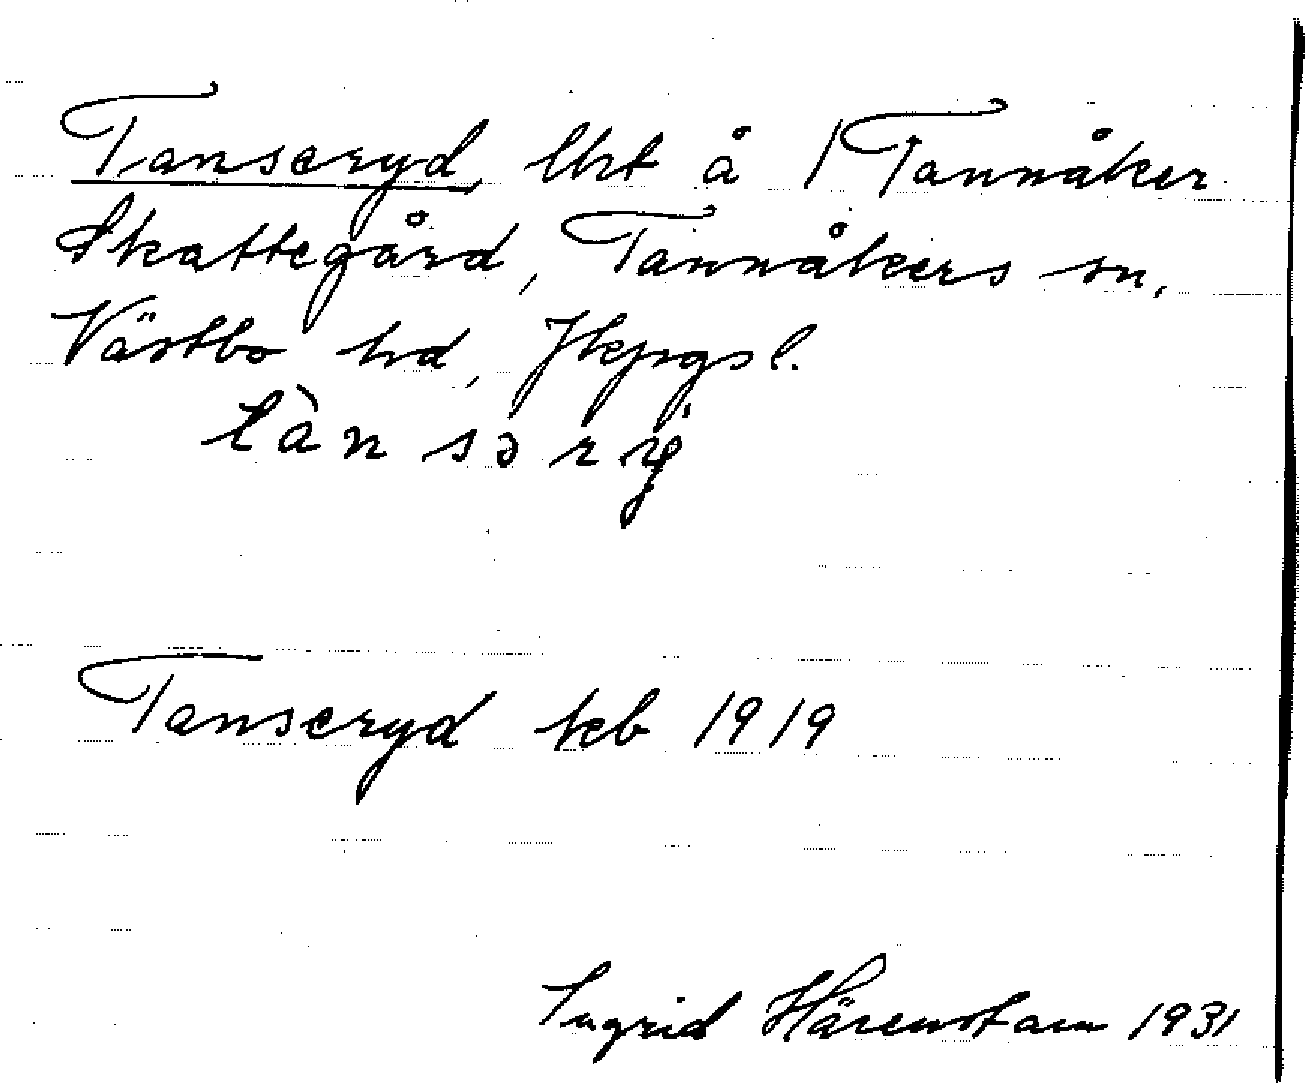 Tanseryd, lht å 1 Tannåker
Skattegård, Tannåkers sn,
Västbo hd, Jkpgs l.
tànsəry
Tanseryd keb 1919
Ingrid Härenstam 1931